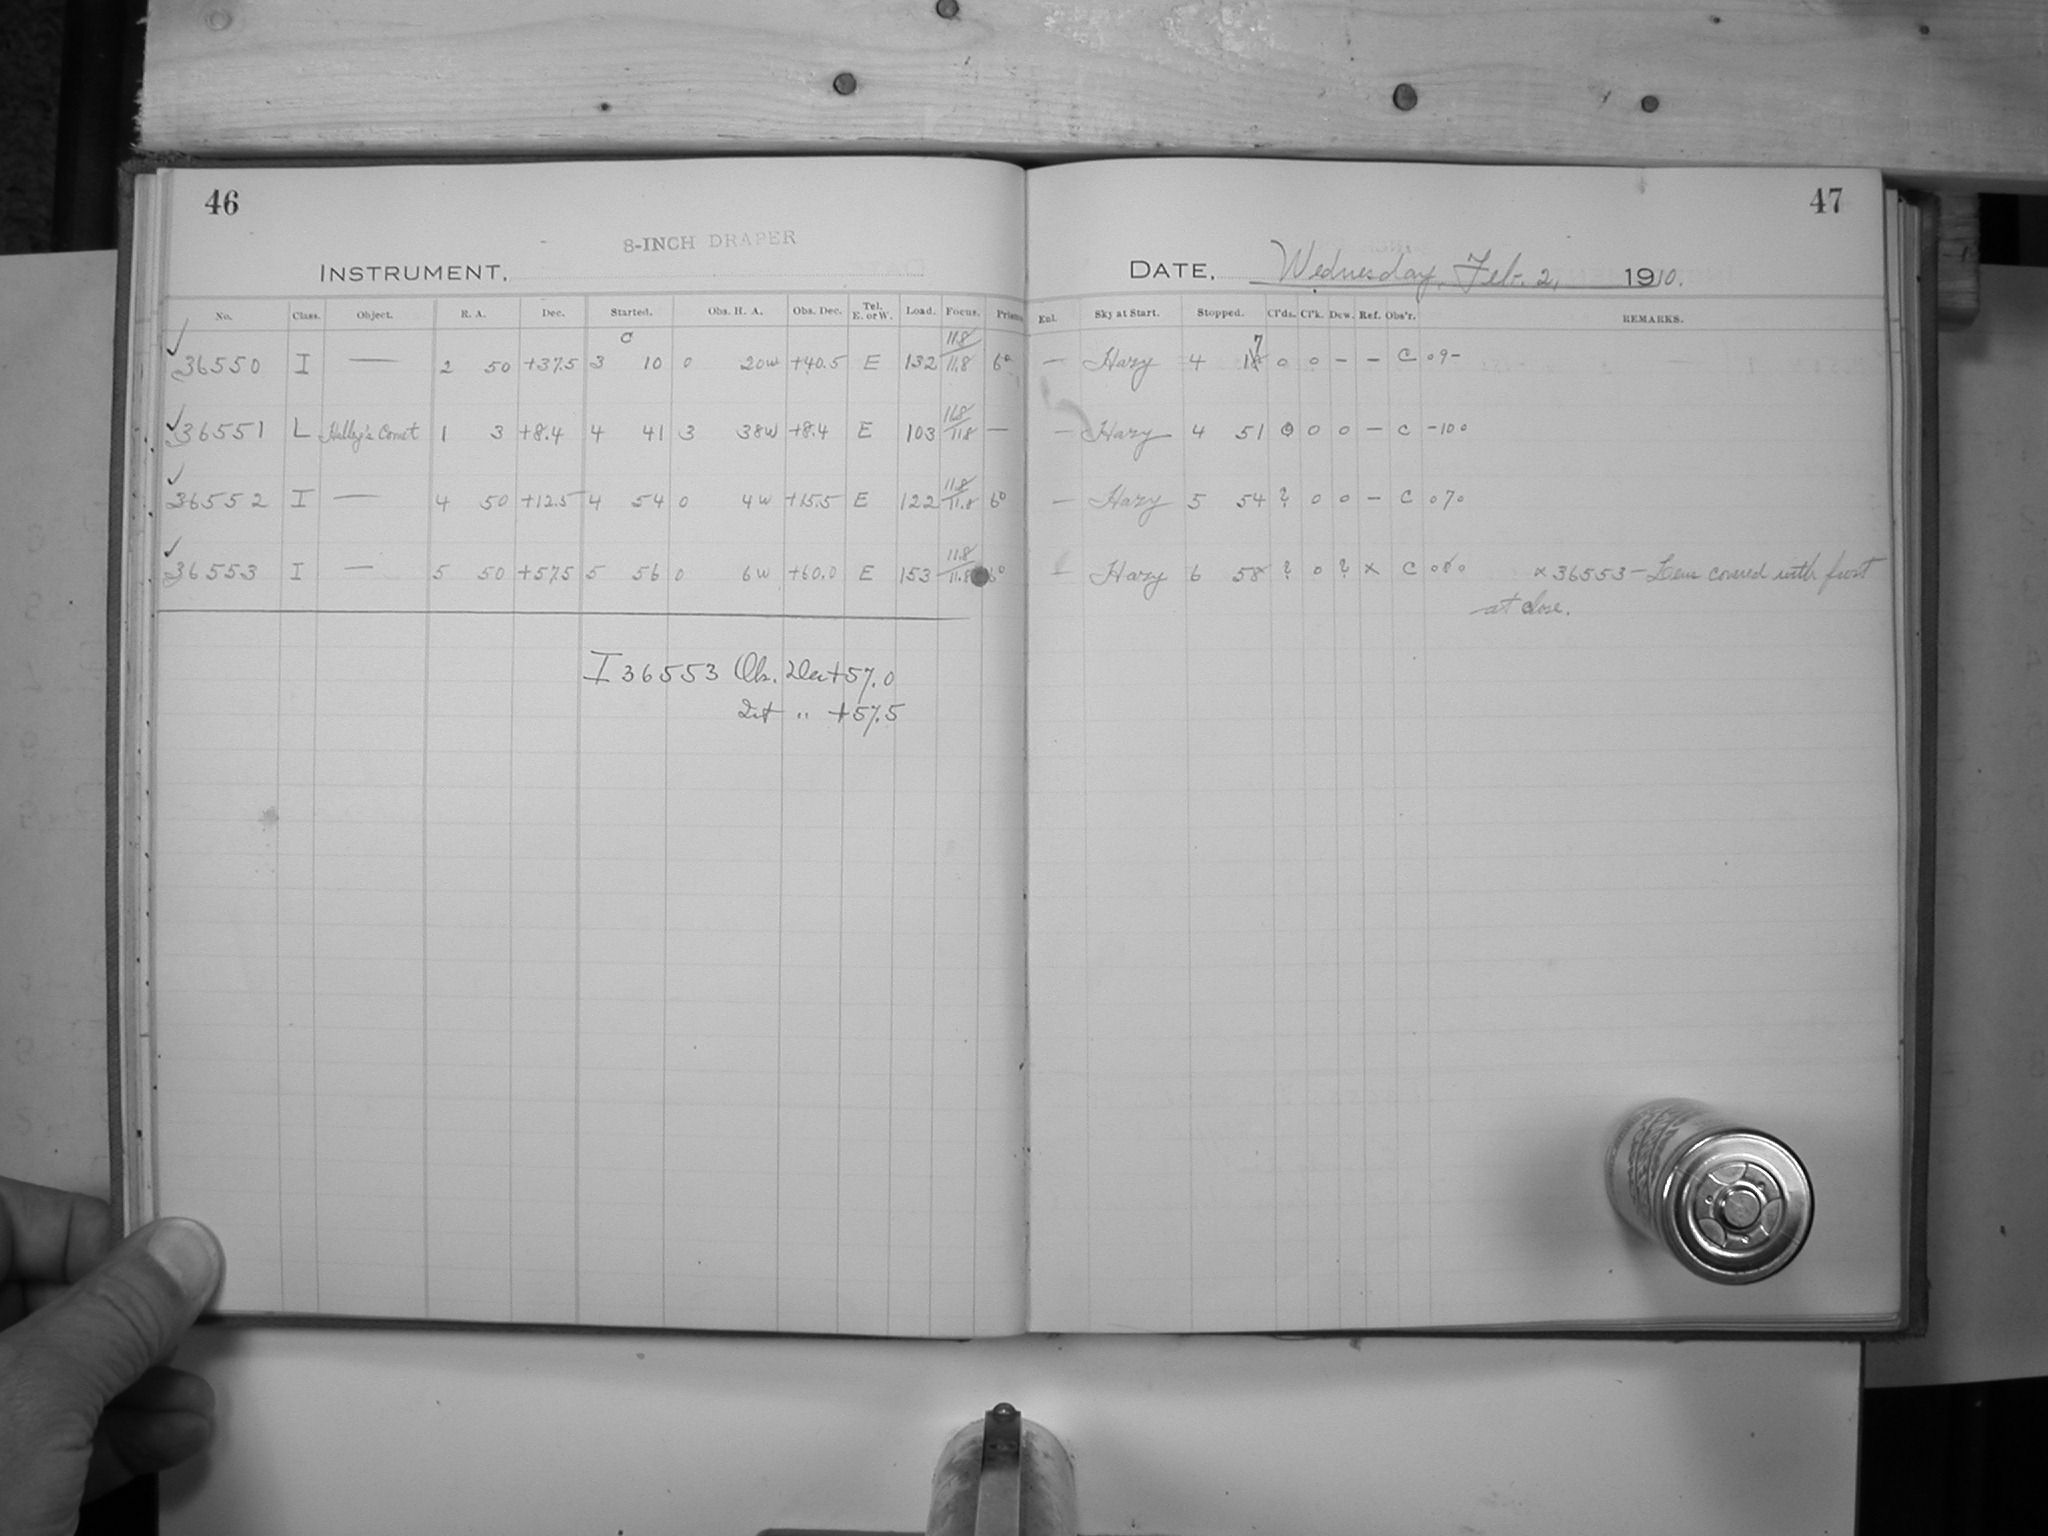 46
8-INCH DRAPER
INSTRUMENT.
No. Class. Object. R. A. Dec. Started. Obs. H. A. Obs. Dec. Tel. E. or W. Load. Focus. Prism
c 11.8
36550 I — 2 50 +37.5 3 10 0 20w +40.5 E 132 11.8 6°
11.8
36551 L Halley's Comet 1 3 +8.4 4 41 3 38w +8.4 E 103 11.8 —
11.8
36552 I — 4 50 +12.5 4 54 0 4w +15.5 E 122 11.8 6°
11.8
36553 I — 5 50 +57.5 5 56 0 6w +60.0 E 153 11.8 6°
I 36553 Obs. Dec +57.0
" +57.5
47
DATE. Wednesday, Feb. 2, 1910.
Enl. Sky at Start. Stopped. Cl'ds. Cl'k. Dew. Ref. Obs'r. REMARKS.
7
— Hazy 4 18 0 0 – – C 09–
— Hazy 4 51 0 0 0 – C –100
— Hazy 5 54 ? 0 0 – C 070
– Hazy 6 58 ? 0 ? x C 080 x 36553 – Lens covered with frost
at close.